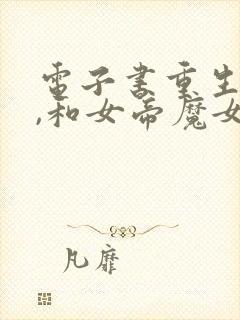 電子書重生
,和女帝魔女
凡靡